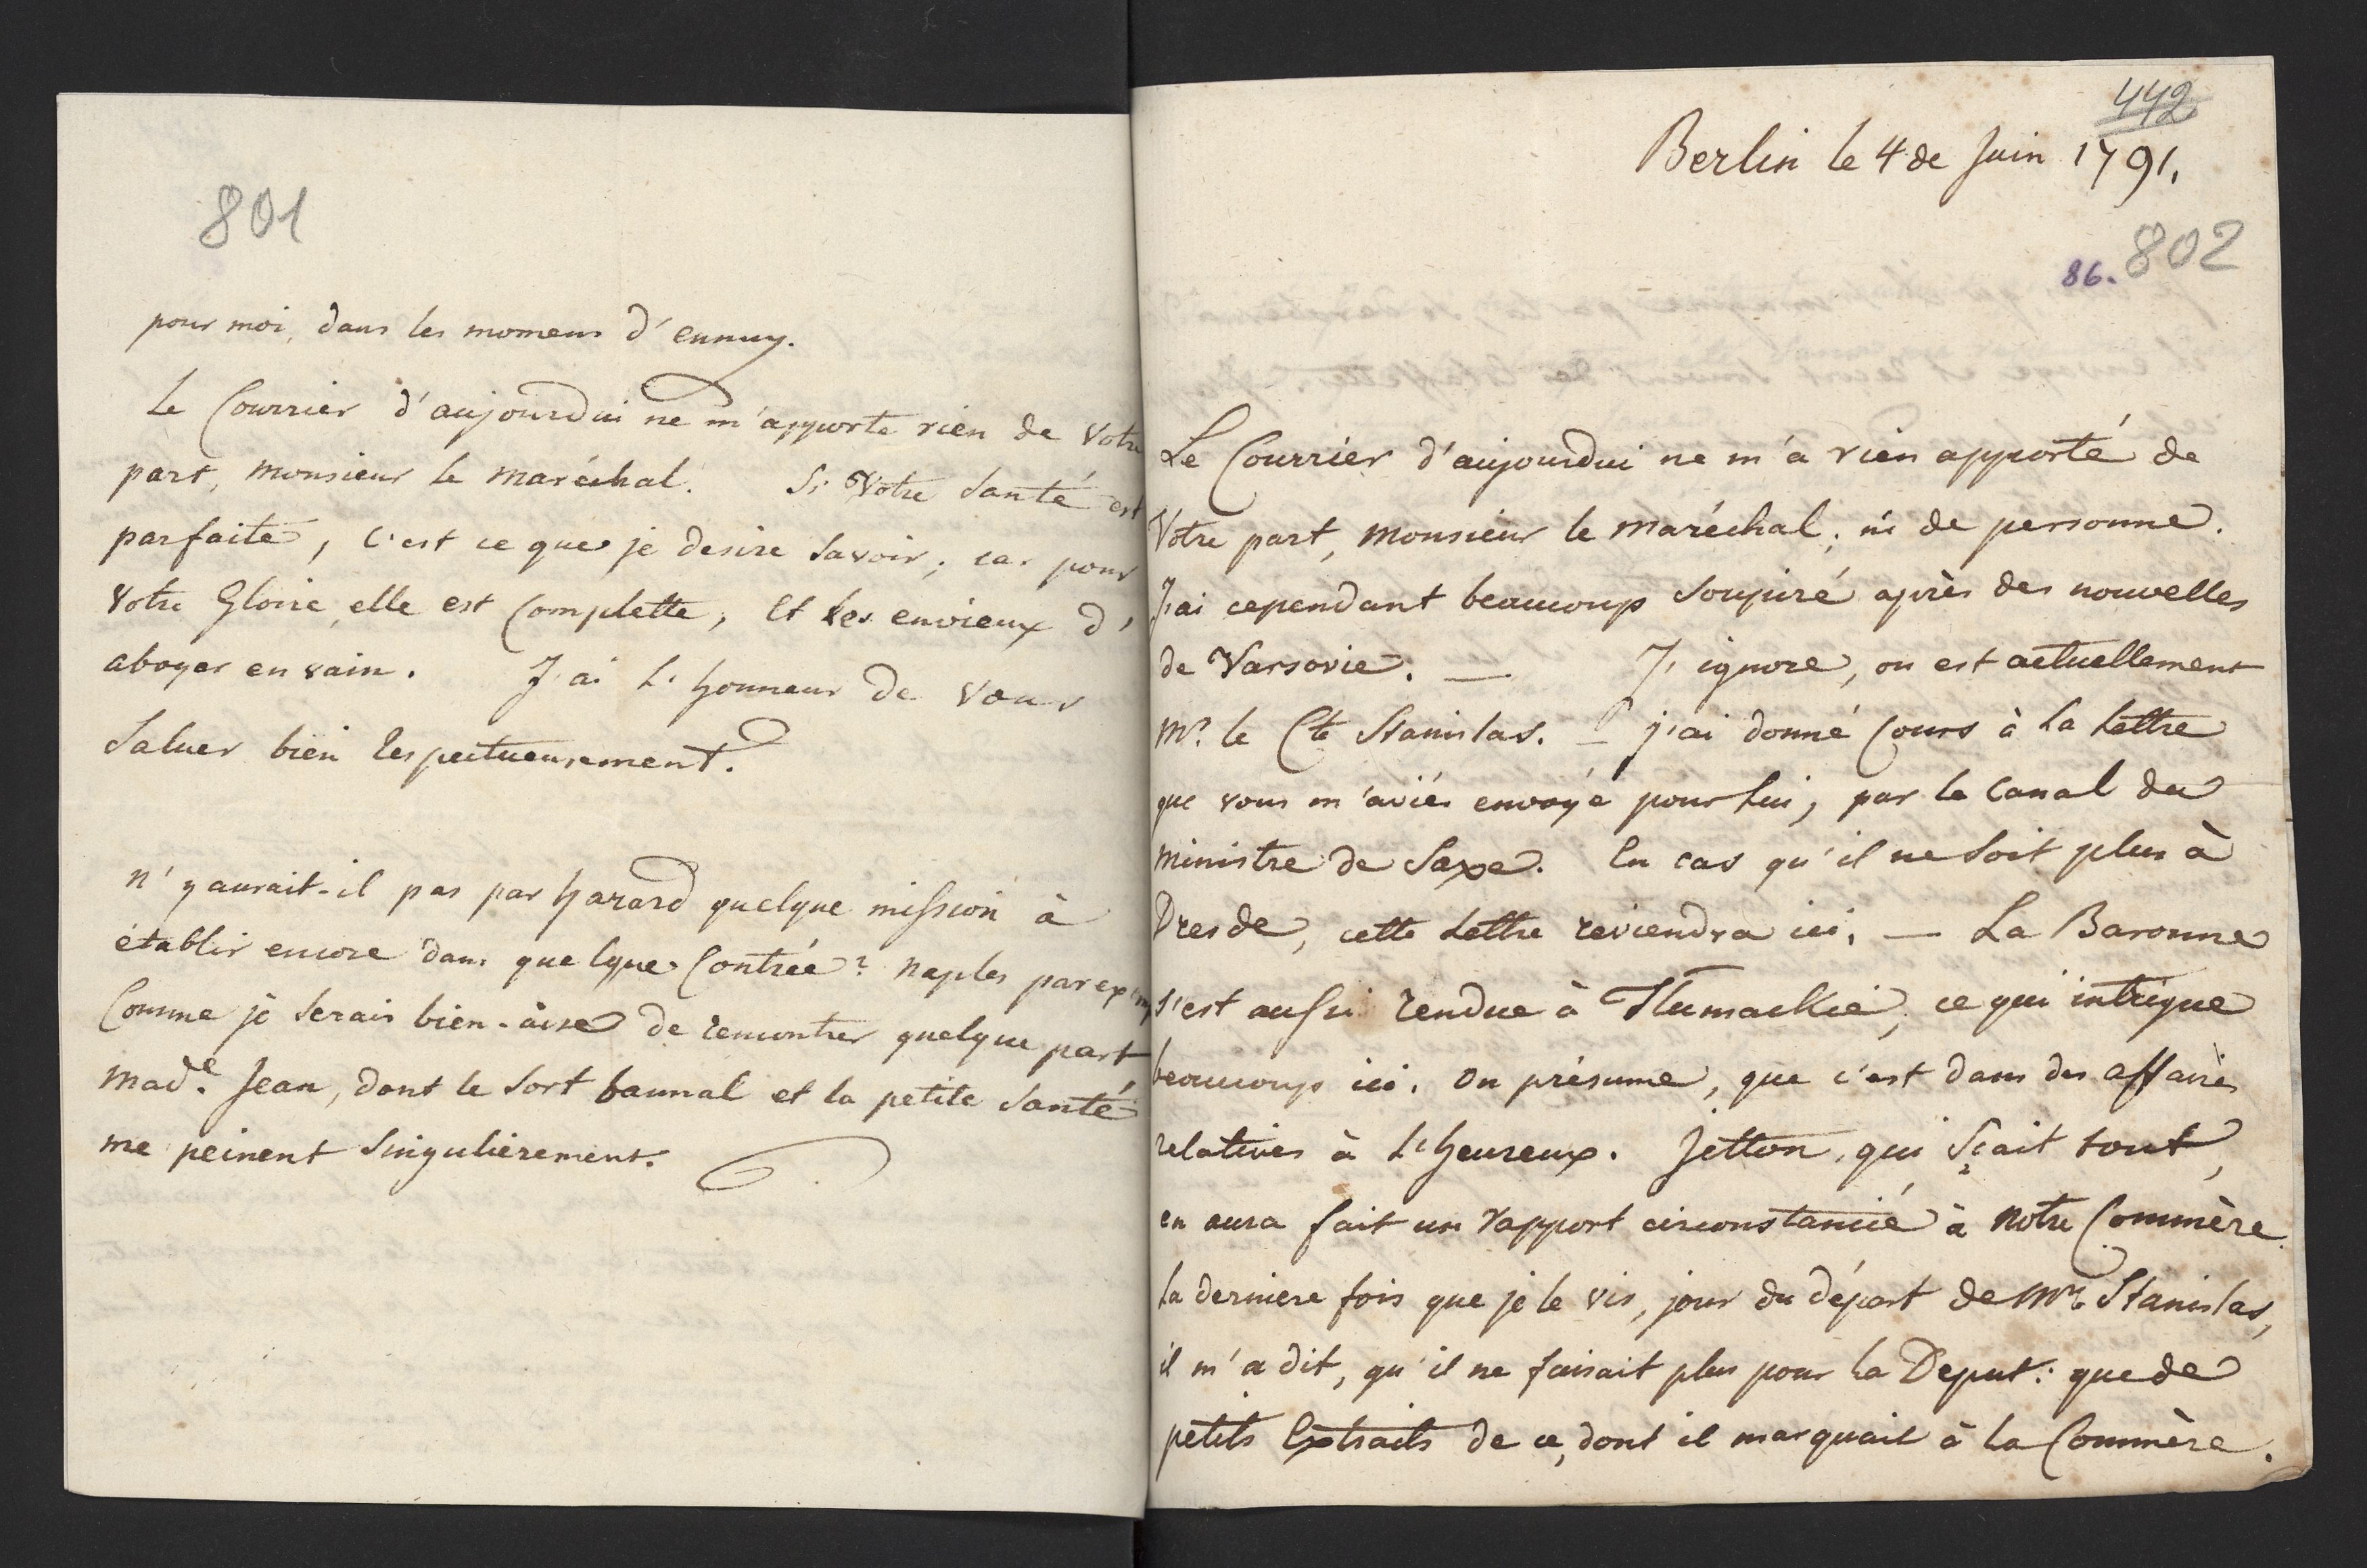 801
pour moi, dans les momens d'ennuy.
Le Courrier d'aujourdui ne m'apporte rien de Votre
part, Monsieur le Maréchal. Si Votre Santé est
parfaite, c'est ce que je desire Savoir; car pour
Votre Gloire, elle est Complette, et les envieux d'
aboyer en vain. J'ai l'honneur de vous
Saluer bien respectueusement.
N'y aurait-il pas par hazard quelque mission à
établir encore dans quelque Contrée? Naples par
Comme je serais bien-aise de rencontrer quelque part
Made. Jean, dont le Sort bannal et la petite Santé
me peinent Singulièrement.
442
Berlin le 4 de Juin 1791.
86. 802
Le Courrier d'aujourdui ne m'a rien apporté de
Votre part, Monsieur le Maréchal, ni de personne.
J'ai cependant beaucoup Soupiré après des nouvelles
de Varsovie. — J'ignore, ou est actuellement
Mr. le Cte Stanislas. — j'ai donné Cours à la Lettre
que vous m'aviés envoyé pour lui, par le Canal du
Ministre de Saxe. En cas qu'il ne soit plus à
Dresde, cette Lettre reviendra ici. — La Baronne
s'est aussi rendue à Tlumackie, ce qui intrigue
beaucoup ici. On présume, que c'est dans des affaires
relatives à l'heureux. Jetton, qui Sçait tout,
en aura fait un rapport circonstancié à Notre Commère.
La derniere fois que je le vis, jour du départ de Mr. Stanislas,
il m'a dit, qu'il ne faisait plus pour la Deput: que de
petits Extraits de ce, dont il marquait à la Commère.